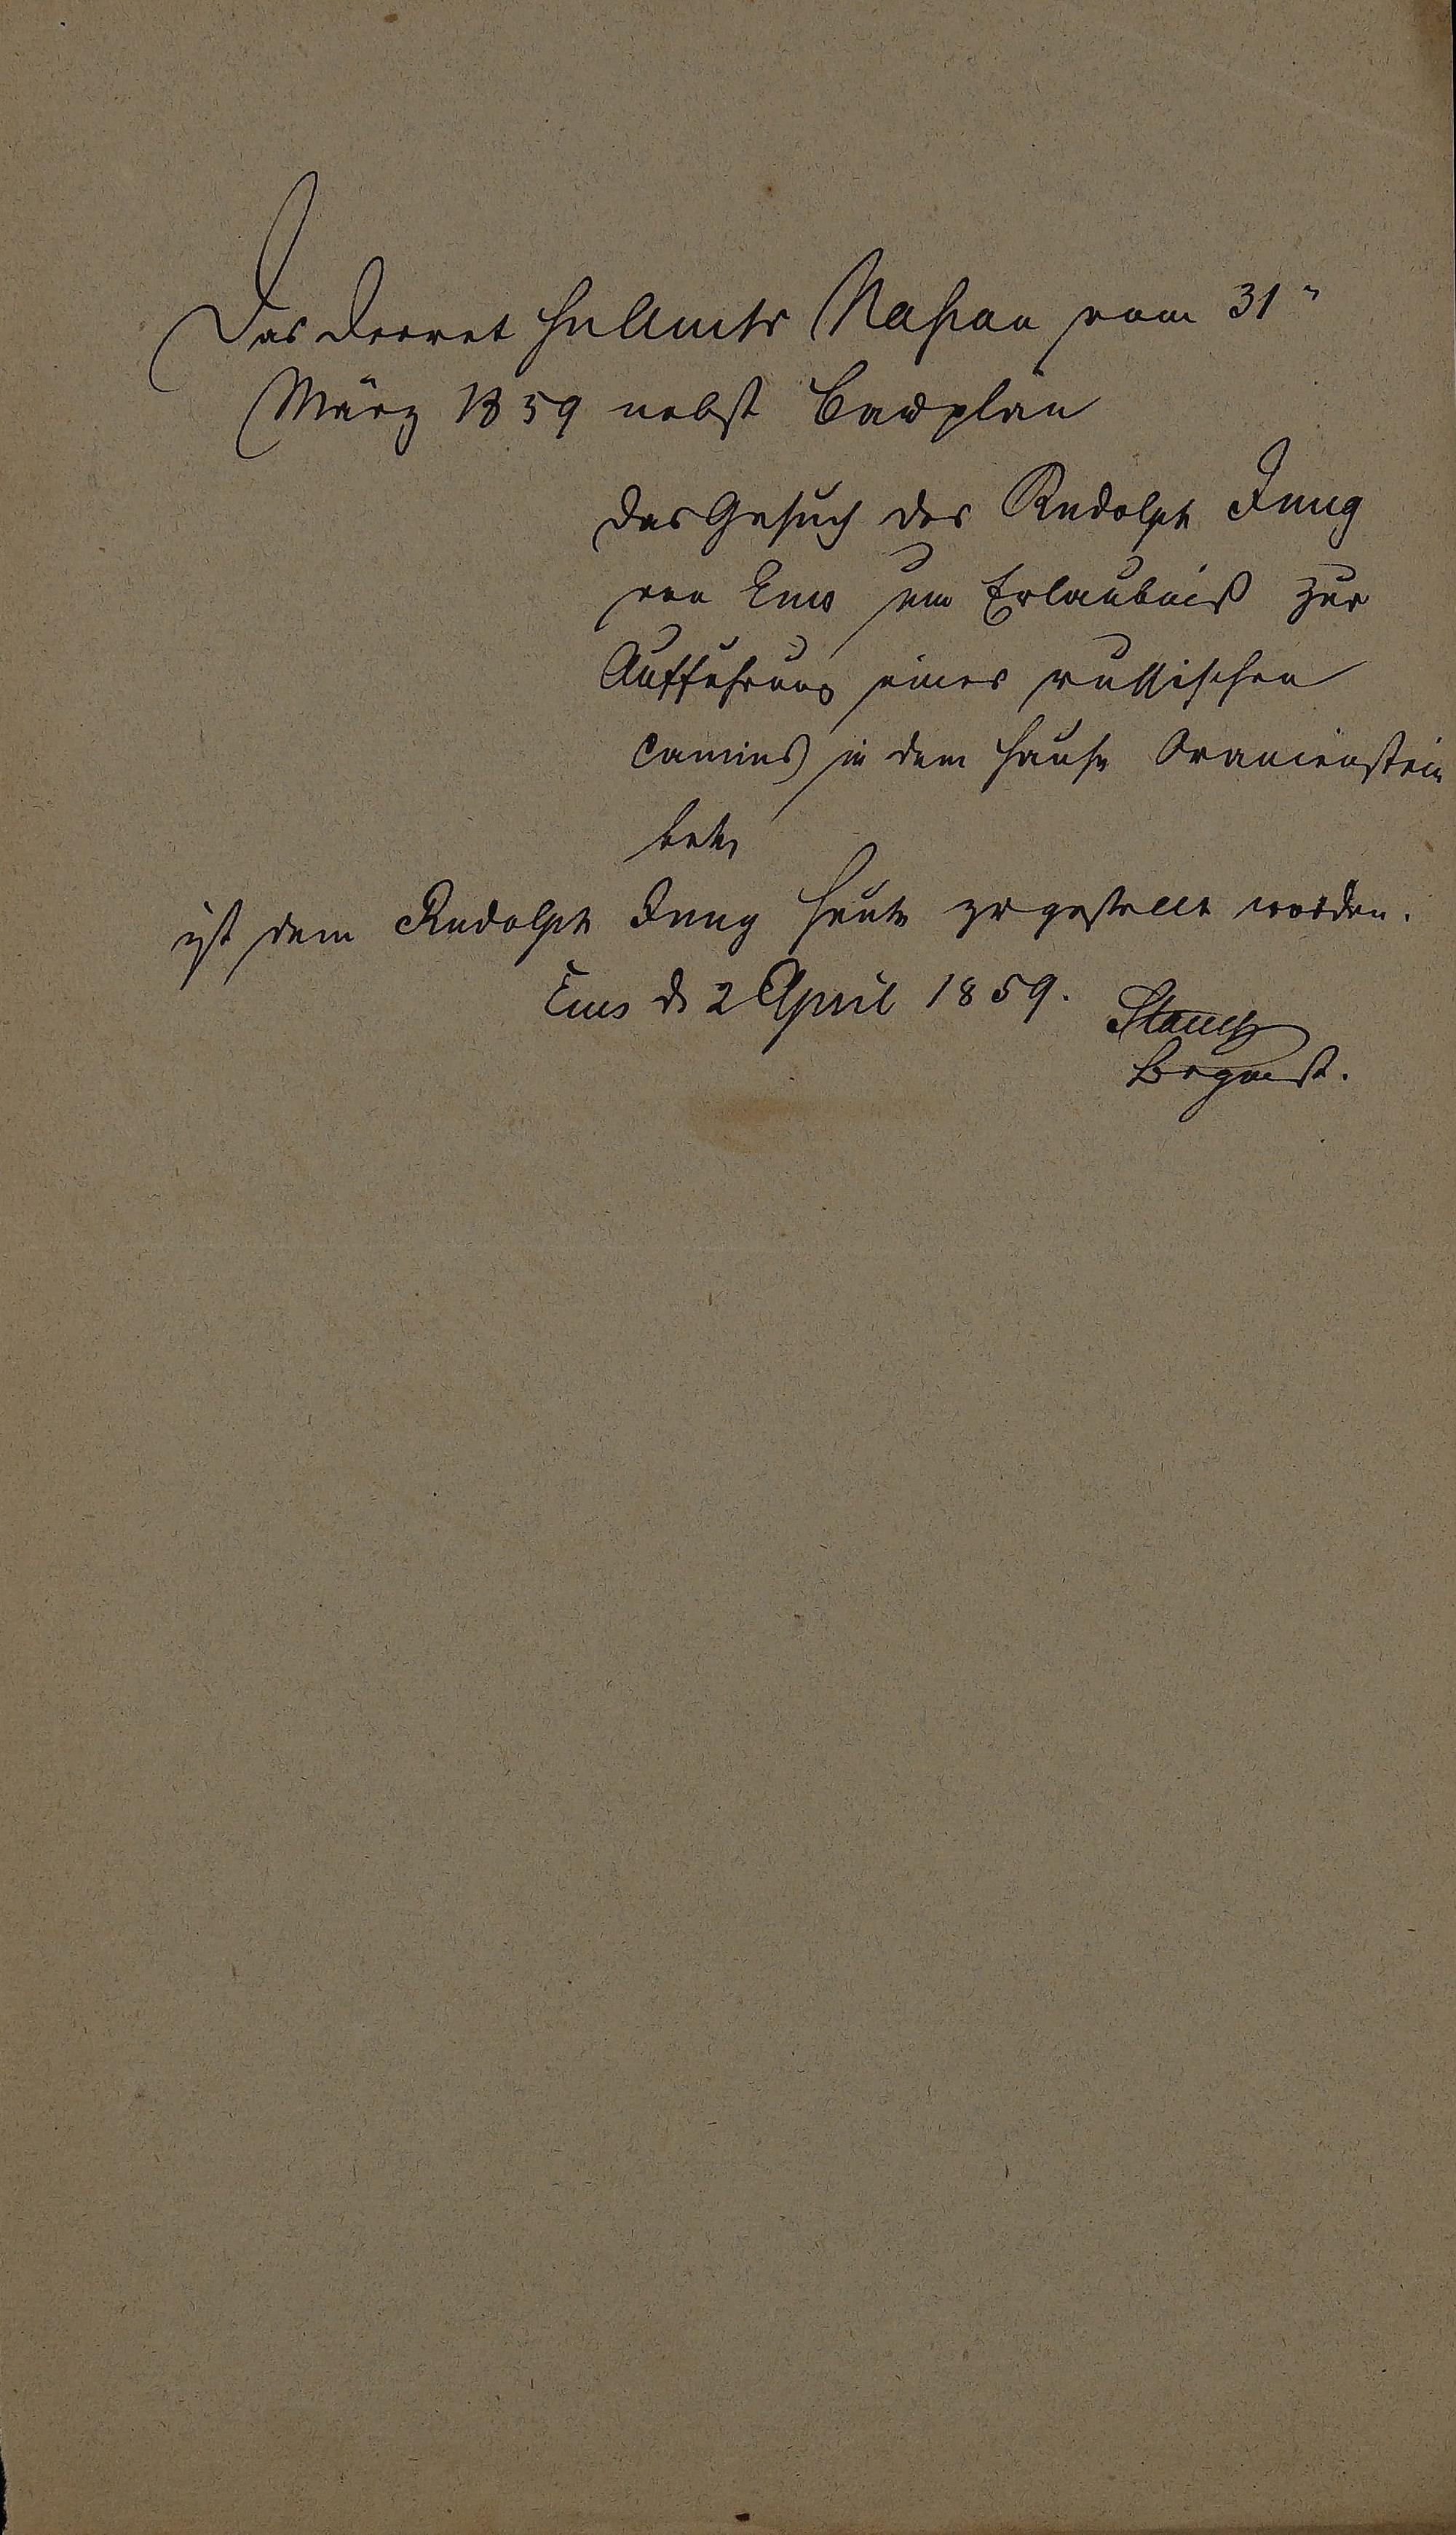 Das Decret Hrl Amts Naßau vom 31"
März 1859 nebst Bauplan
das Gesuch des Rudolph Jung
von Ems um Erlaubniß zur
Aufführung eines russischen
Camins in dem Hause Oranienstein
betr
ist dem Rudolph Jung heute zugestellt worden.
Ems d 2 April 1859.
Bürgmst.